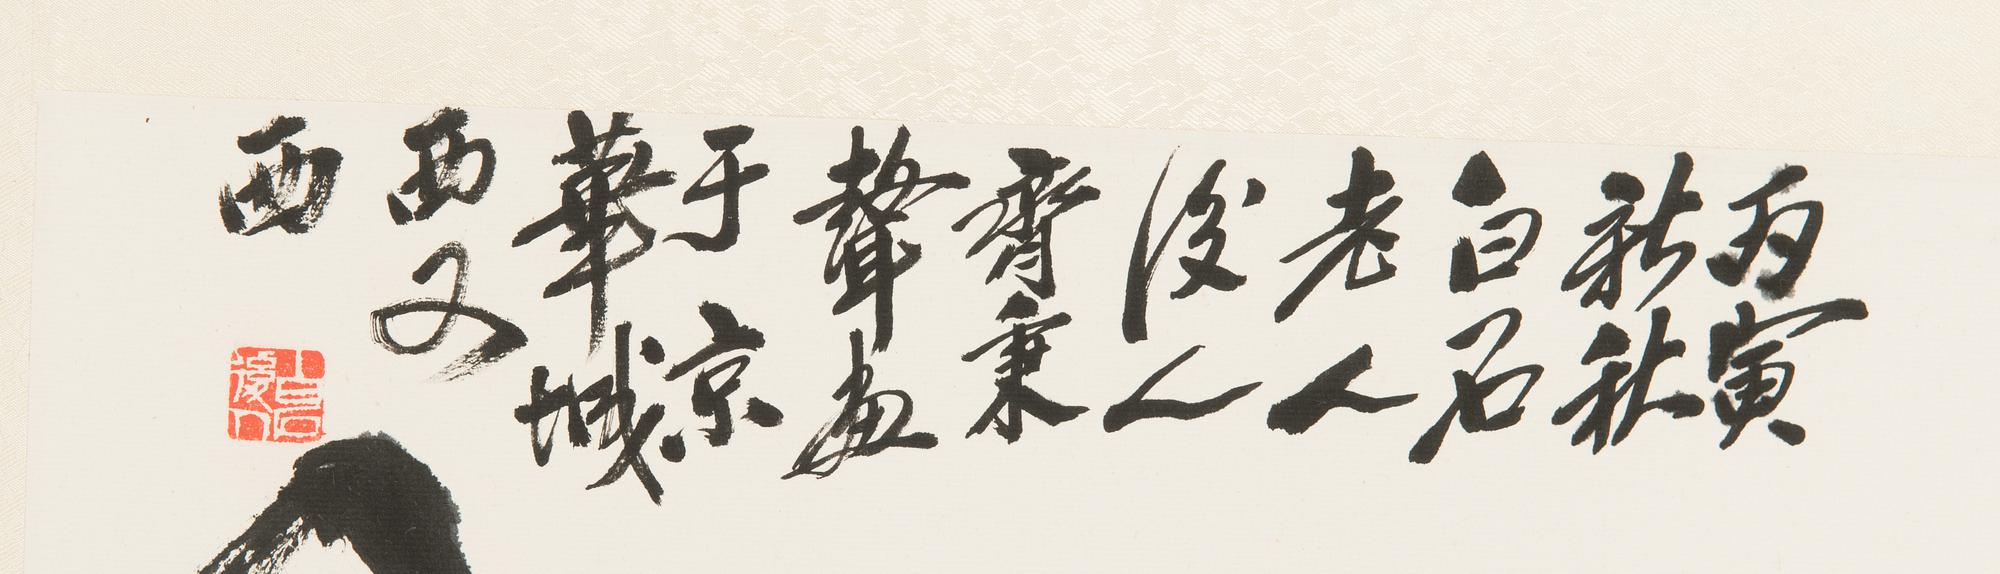 丙寅
新秋
白石
老人
後人
齊秉
聲画
于京
華城
西又
西
白石後人